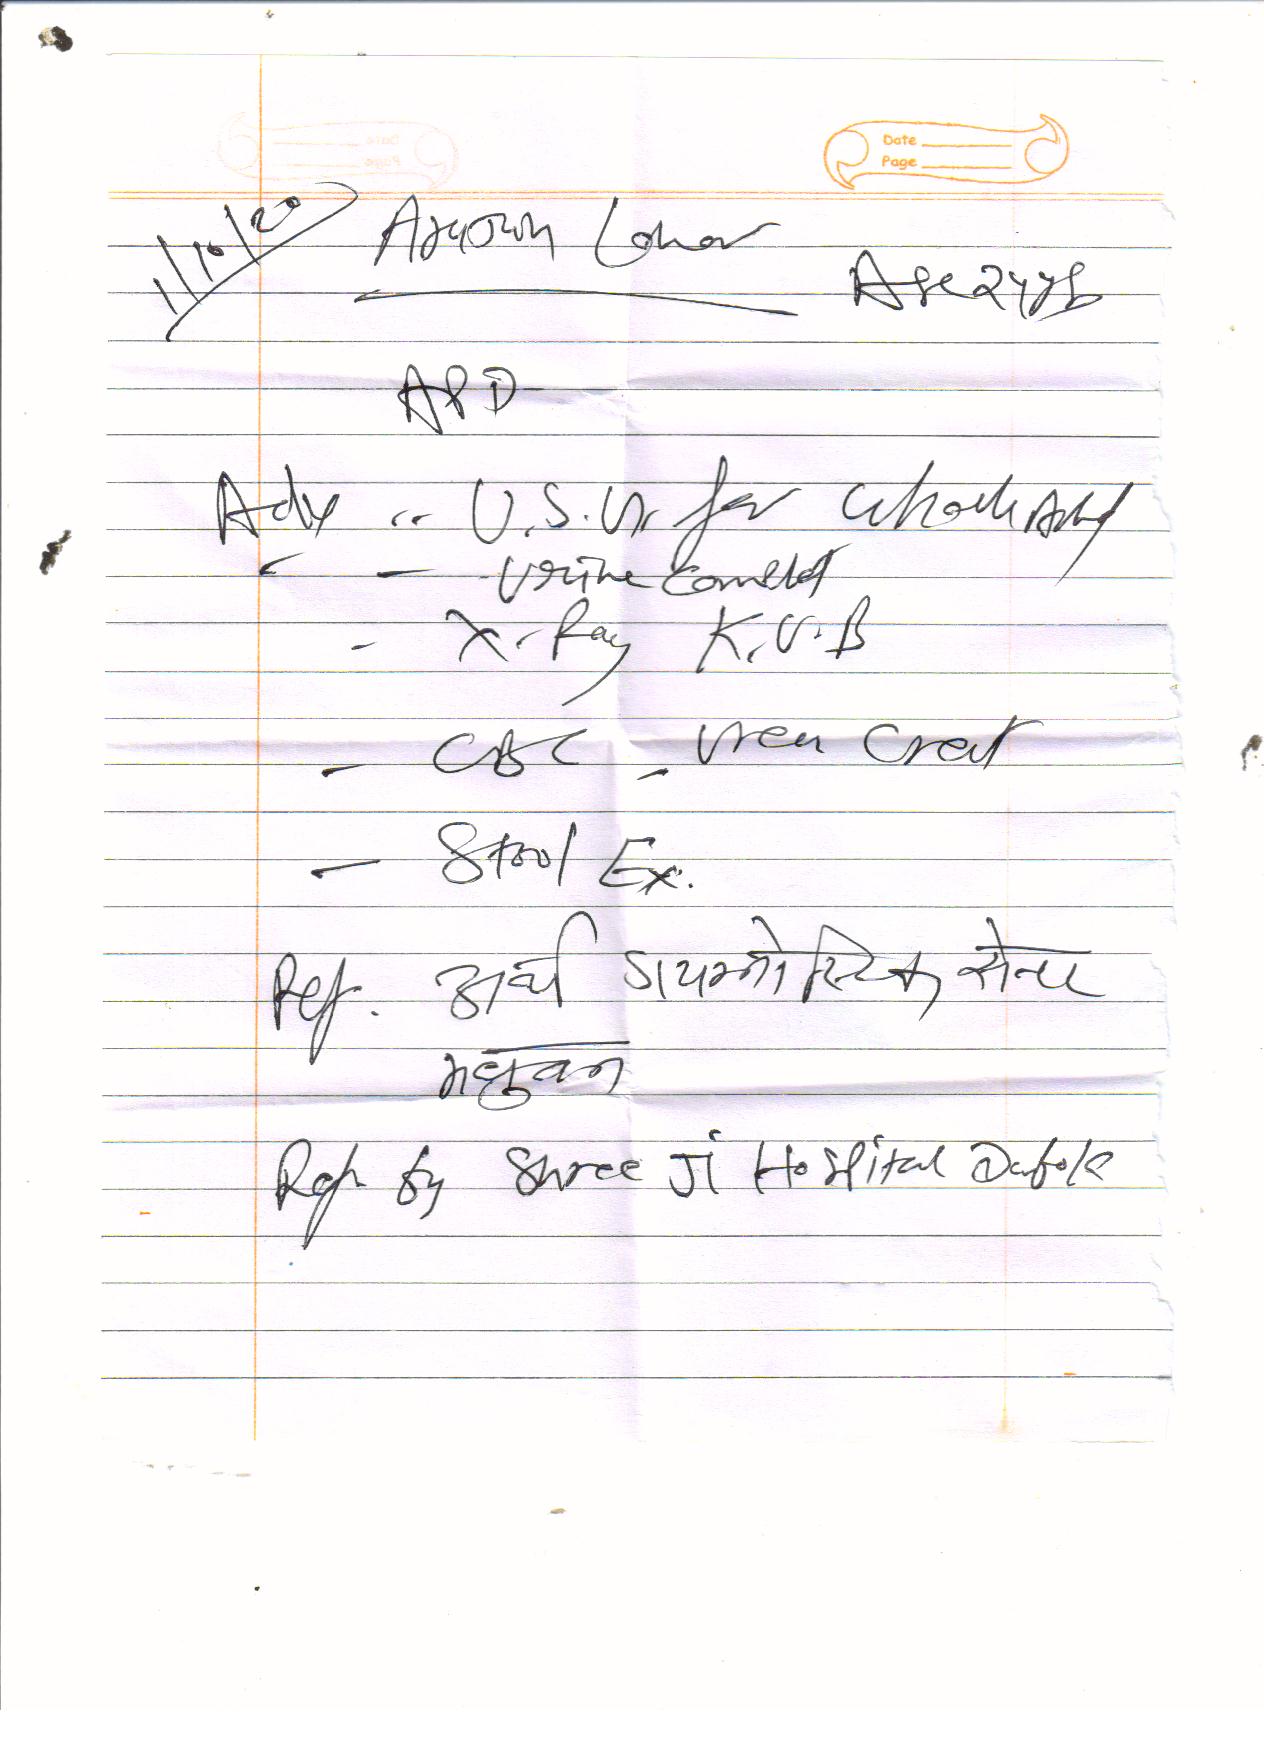 Date
Page
1/10/20
Lohar
Age 24 yrs
APD
Adv .. U.S.G. for whole Abd
- Urine Complet
- X-Ray K.U.B
- CBC - Urea Creat
- Stool Ex.
Ref. डायग्नोस्टिक सेन्टर
Ref by Shree Ji Hospital Dabok